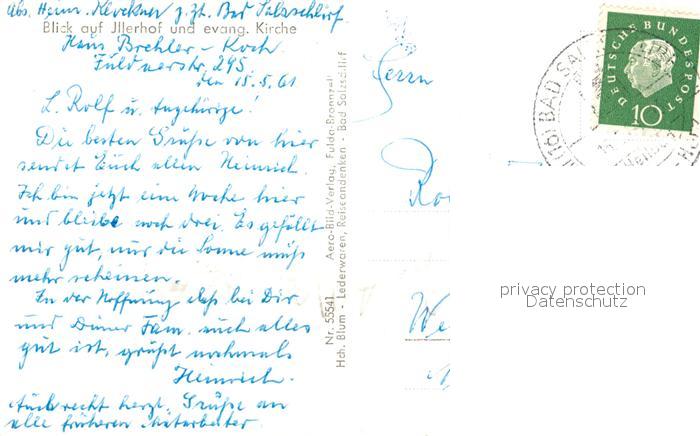 Abs. Heinr. Klöckner z. Zt. Bad Salzschlirf
Blick auf Jllerhof und evang. Kirche
Haus Brehler - Koch
Fuldaerstr. 295
den 15.5.61
L. Rolf u. Angehörige!
Die besten Grüße von hier
sendet Euch allen Heinrich.
Ich bin jetzt eine Woche hier
und bleibe noch drei. Es gefällt
mir gut, nur die Sonne muß
mehr scheinen.
In der Hoffnung daß bei Dir
und Deiner Fam. auch alles
gut ist, grüßt nochmals
Heinrich.
Auch recht herzl. Grüße an
alle früheren Mitarbeiter
Nr. 55541 Aero-Bild-Verlag, Fulda-Bronnzell
Hch. Blum - Lederwaren, Reiseandenken - Bad Salzschlirf
Herrn
Ro
We
DEUTSCHE BUNDESPOST
10
BAD SAL
privacy protection
Datenschutz